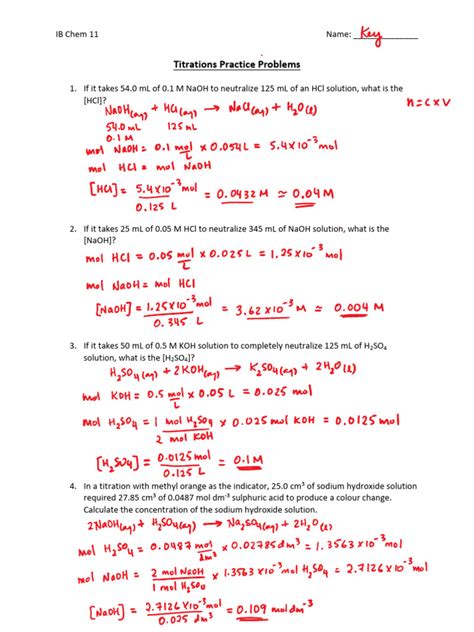 IB Chem 11 Name: Key
Titrations Practice Problems
1. If it takes 54.0 mL of 0.1 M NaOH to neutralize 125 mL of an HCl solution, what is the
[HCl]?
n = c x V
NaOH(aq) + HCl(aq) → NaCl(aq) + H₂O(l)
54.0 mL 125 mL
0.1 M
mol NaOH = 0.1 mol/L x 0.054 L = 5.4 x 10⁻³ mol
mol HCl = mol NaOH
[HCl] = 5.4 x 10⁻³ mol / 0.125 L = 0.0432 M ≃ 0.04 M
2. If it takes 25 mL of 0.05 M HCl to neutralize 345 mL of NaOH solution, what is the
[NaOH]?
mol HCl = 0.05 mol/L x 0.025 L = 1.25 x 10⁻³ mol
mol NaOH = mol HCl
[NaOH] = 1.25 x 10⁻³ mol / 0.345 L = 3.62 x 10⁻³ M ≃ 0.004 M
3. If it takes 50 mL of 0.5 M KOH solution to completely neutralize 125 mL of H₂SO₄
solution, what is the [H₂SO₄]?
H₂SO₄(aq) + 2KOH(aq) → K₂SO₄(aq) + 2H₂O(l)
mol KOH = 0.5 mol/L x 0.05 L = 0.025 mol
mol H₂SO₄ = 1 mol H₂SO₄ / 2 mol KOH x 0.025 mol KOH = 0.0125 mol
[H₂SO₄] = 0.0125 mol / 0.125 L = 0.1 M
4. In a titration with methyl orange as the indicator, 25.0 cm³ of sodium hydroxide solution
required 27.85 cm³ of 0.0487 mol dm⁻³ sulphuric acid to produce a colour change.
Calculate the concentration of the sodium hydroxide solution.
2NaOH(aq) + H₂SO₄(aq) → Na₂SO₄(aq) + 2H₂O(l)
mol H₂SO₄ = 0.0487 mol/dm³ x 0.02785 dm³ = 1.3563 x 10⁻³ mol
mol NaOH = 2 mol NaOH / 1 mol H₂SO₄ x 1.3563 x 10⁻³ mol = 2.7126 x 10⁻³ mol
[NaOH] = 2.7126 x 10⁻³ mol / 0.025 dm³ = 0.109 mol dm⁻³